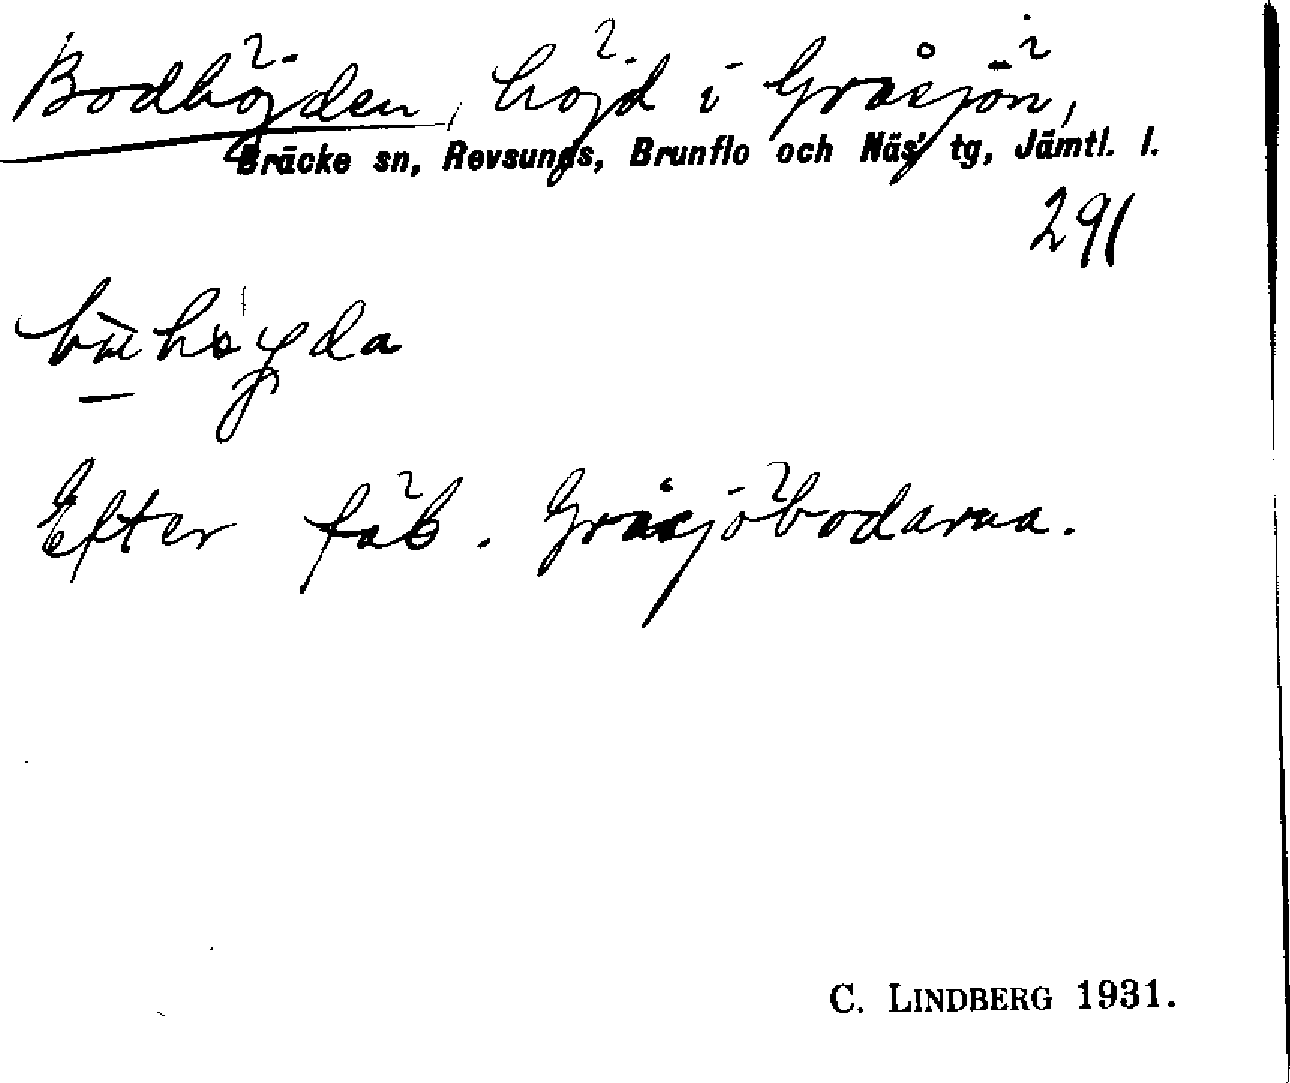 Bodhöjden, höjd i Gråsjön,
Bräcke sn, Revsunds, Brunflo och Näs' tg, Jämtl. l.
291
Efter fäb. Gråsjöbodarna.
C. LINDBERG 1931.